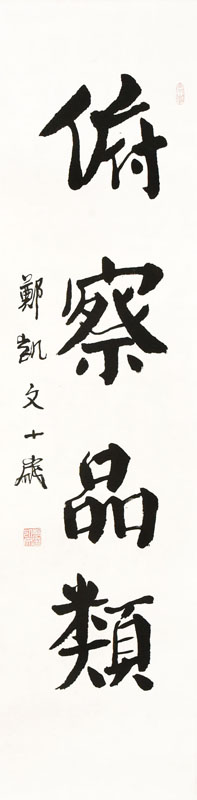 俯察品類
鄭凱文十歲